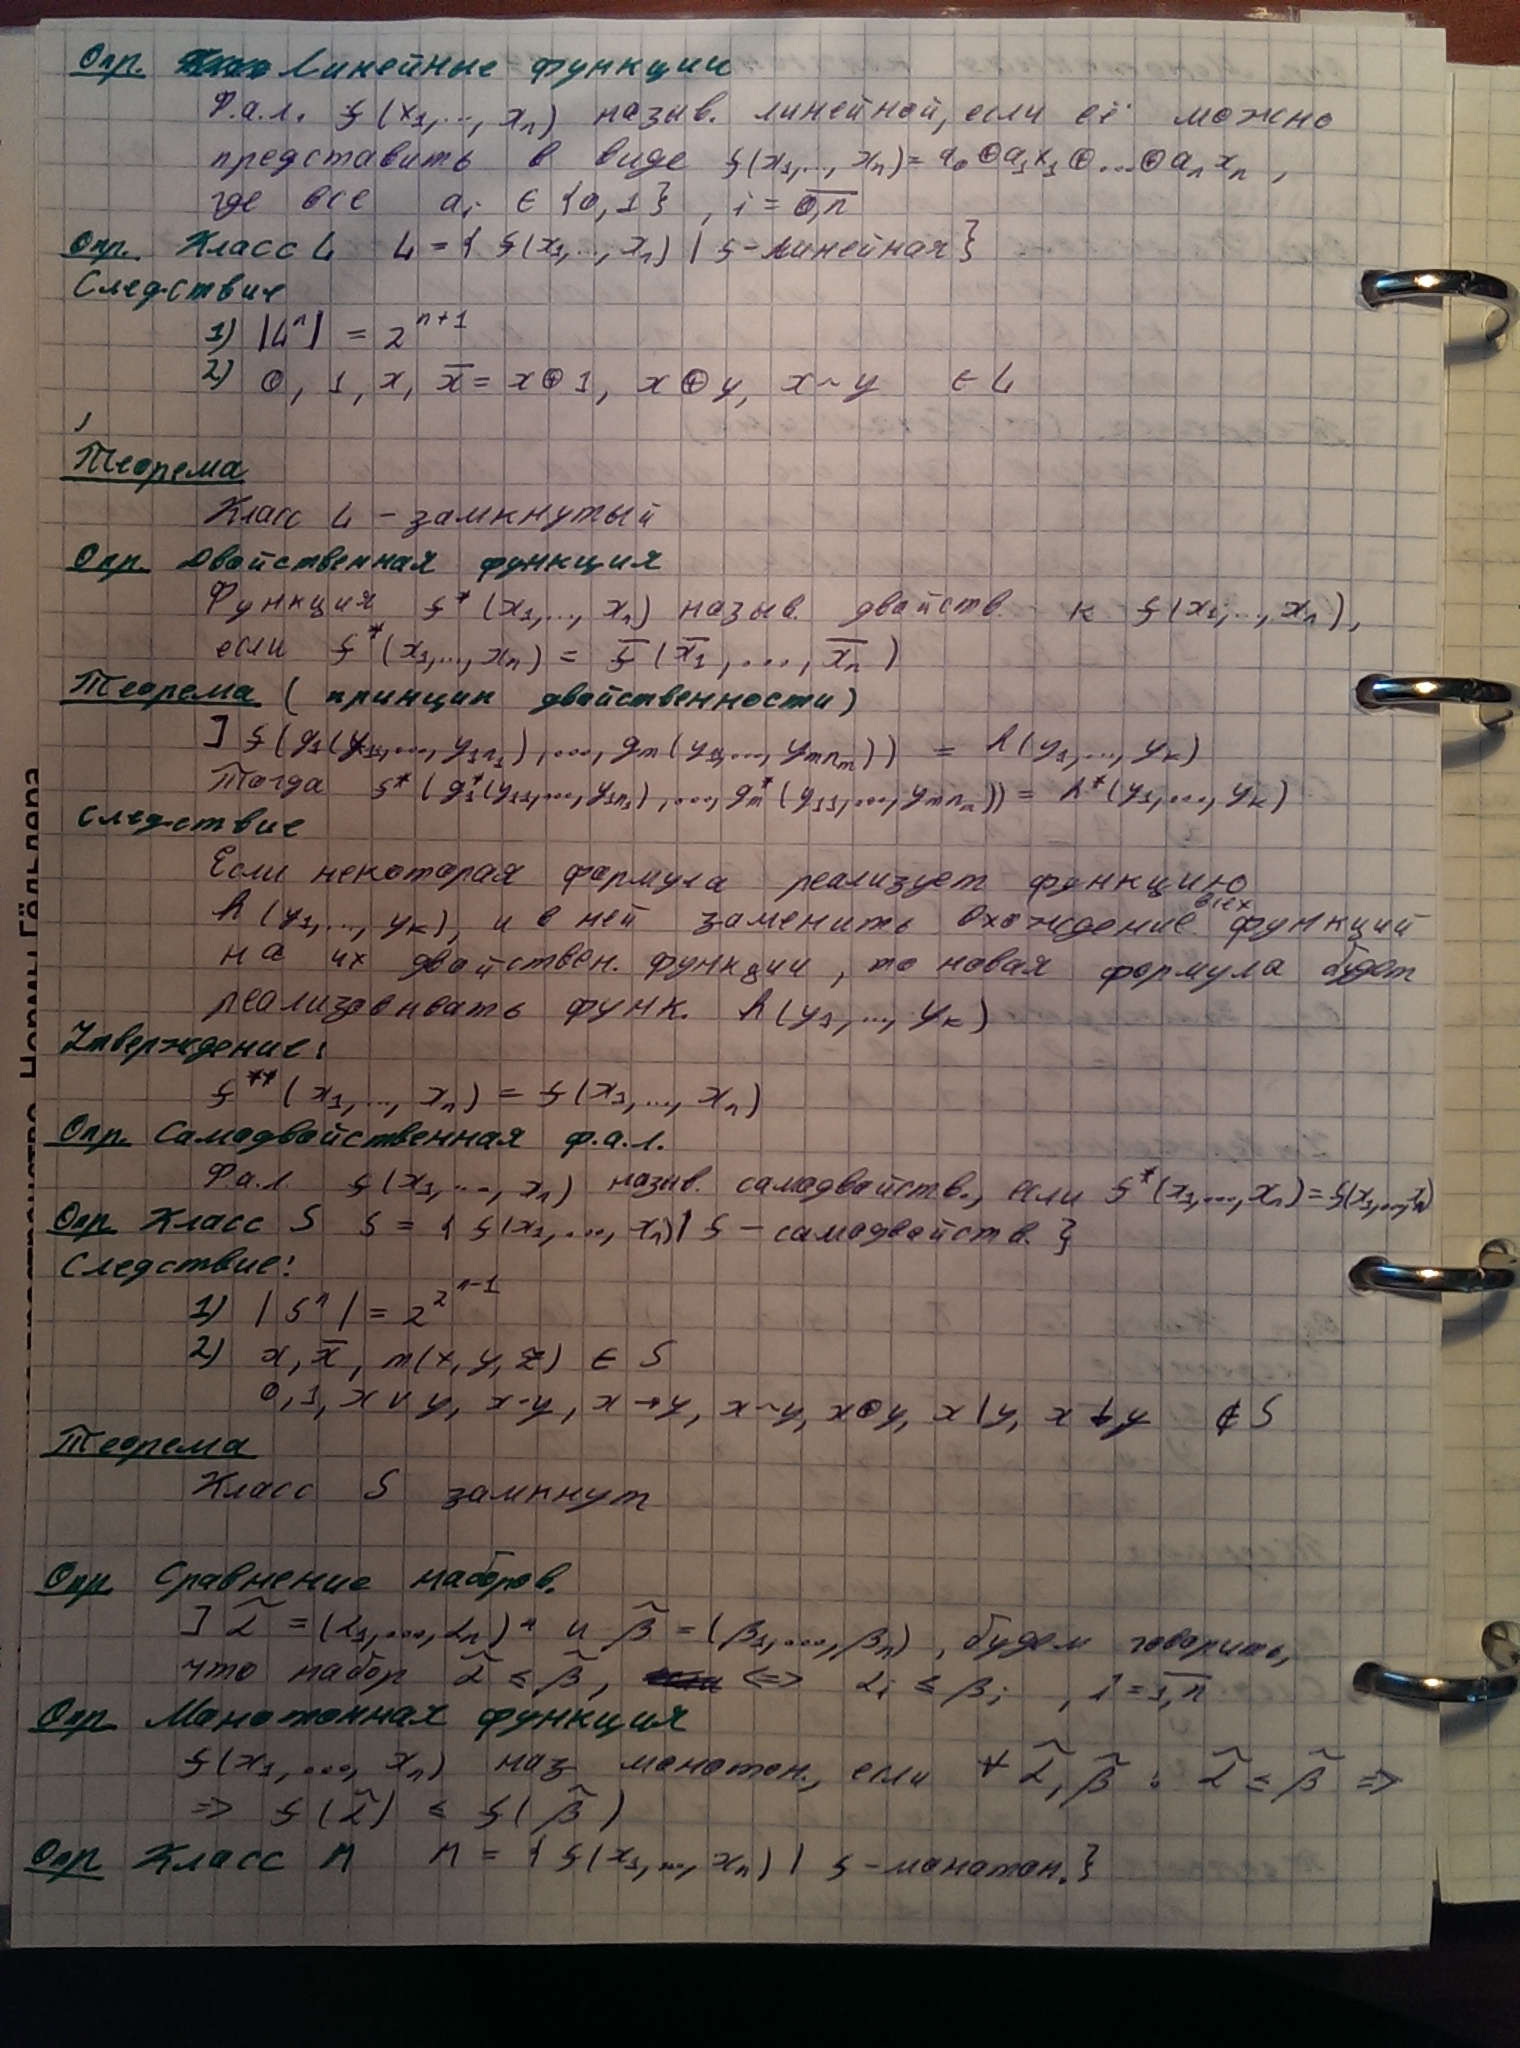 Опр. Линейные функции
Ф.а.л. f(x₁,..., xₙ) назыв. линейной, если её можно
представить в виде f(x₁,..., xₙ) = a₀⊕a₁x₁⊕...⊕aₙxₙ,
где все aᵢ ∈ {0,1}, i = 0,n̅
Опр. Класс L L = { f(x₁,..., xₙ) | f - линейная}
Следствие
1) |Lⁿ| = 2ⁿ⁺¹
2) 0, 1, x, x̅ = x⊕1, x⊕y, x~y ∈ L
Теорема
Класс L - замкнутый
Опр. Двойственная функция
Функция f*(x₁,..., xₙ) назыв. двойств. к f(x₁,..., xₙ),
если f*(x₁,..., xₙ) = f̅(x̅₁,..., x̅ₙ)
Теорема (принцип двойственности)
] f(g₁(y₁₁,..., y₁ₙ₁),..., gₘ(y₁₁,..., yₘₙₘ)) = h(y₁,..., yₖ)
Тогда f*(g₁*(y₁₁,..., y₁ₙ₁),..., gₘ*(y₁₁,..., yₘₙₘ)) = h*(y₁,..., yₖ)
Следствие
Если некоторая формула реализует функцию
h(y₁,..., yₖ), и в ней заменить вхождение всех функций
на их двойствен. функции, то новая формула будет
реализовивать функ. h(y₁,..., yₖ)
Утверждение:
f**(x₁,..., xₙ) = f(x₁,..., xₙ)
Опр. Самодвойственная ф.а.л.
Ф.а.л. f(x₁,..., xₙ) назыв. самодвойств., если f*(x₁,..., xₙ) = f(x₁,..., xₙ)
Опр. Класс S S = { f(x₁,..., xₙ) | f - самодвойств. }
Следствие:
1) |Sⁿ| = 2^2^(n-1)
2) x, x̅, m(x, y, z) ∈ S
0, 1, x∨y, x·y, x→y, x~y, x⊕y, x|y, x↓y ∉ S
Теорема
Класс S замкнут
Опр. Сравнение наборов.
] α̃ = (α₁,..., αₙ) и β̃ = (β₁,..., βₙ), будем говорить,
что набор α̃ ≤ β̃, <=> αᵢ ≤ βᵢ, i = 1,n̅
Опр. Монотонная функция
f(x₁,..., xₙ) наз монотон., если ∀ α̃, β̃ : α̃ ≤ β̃ =>
=> f(α̃) ≤ f(β̃)
Опр Класс M M = { f(x₁,..., xₙ) | f - монотон.}
Нормы Гёльдера